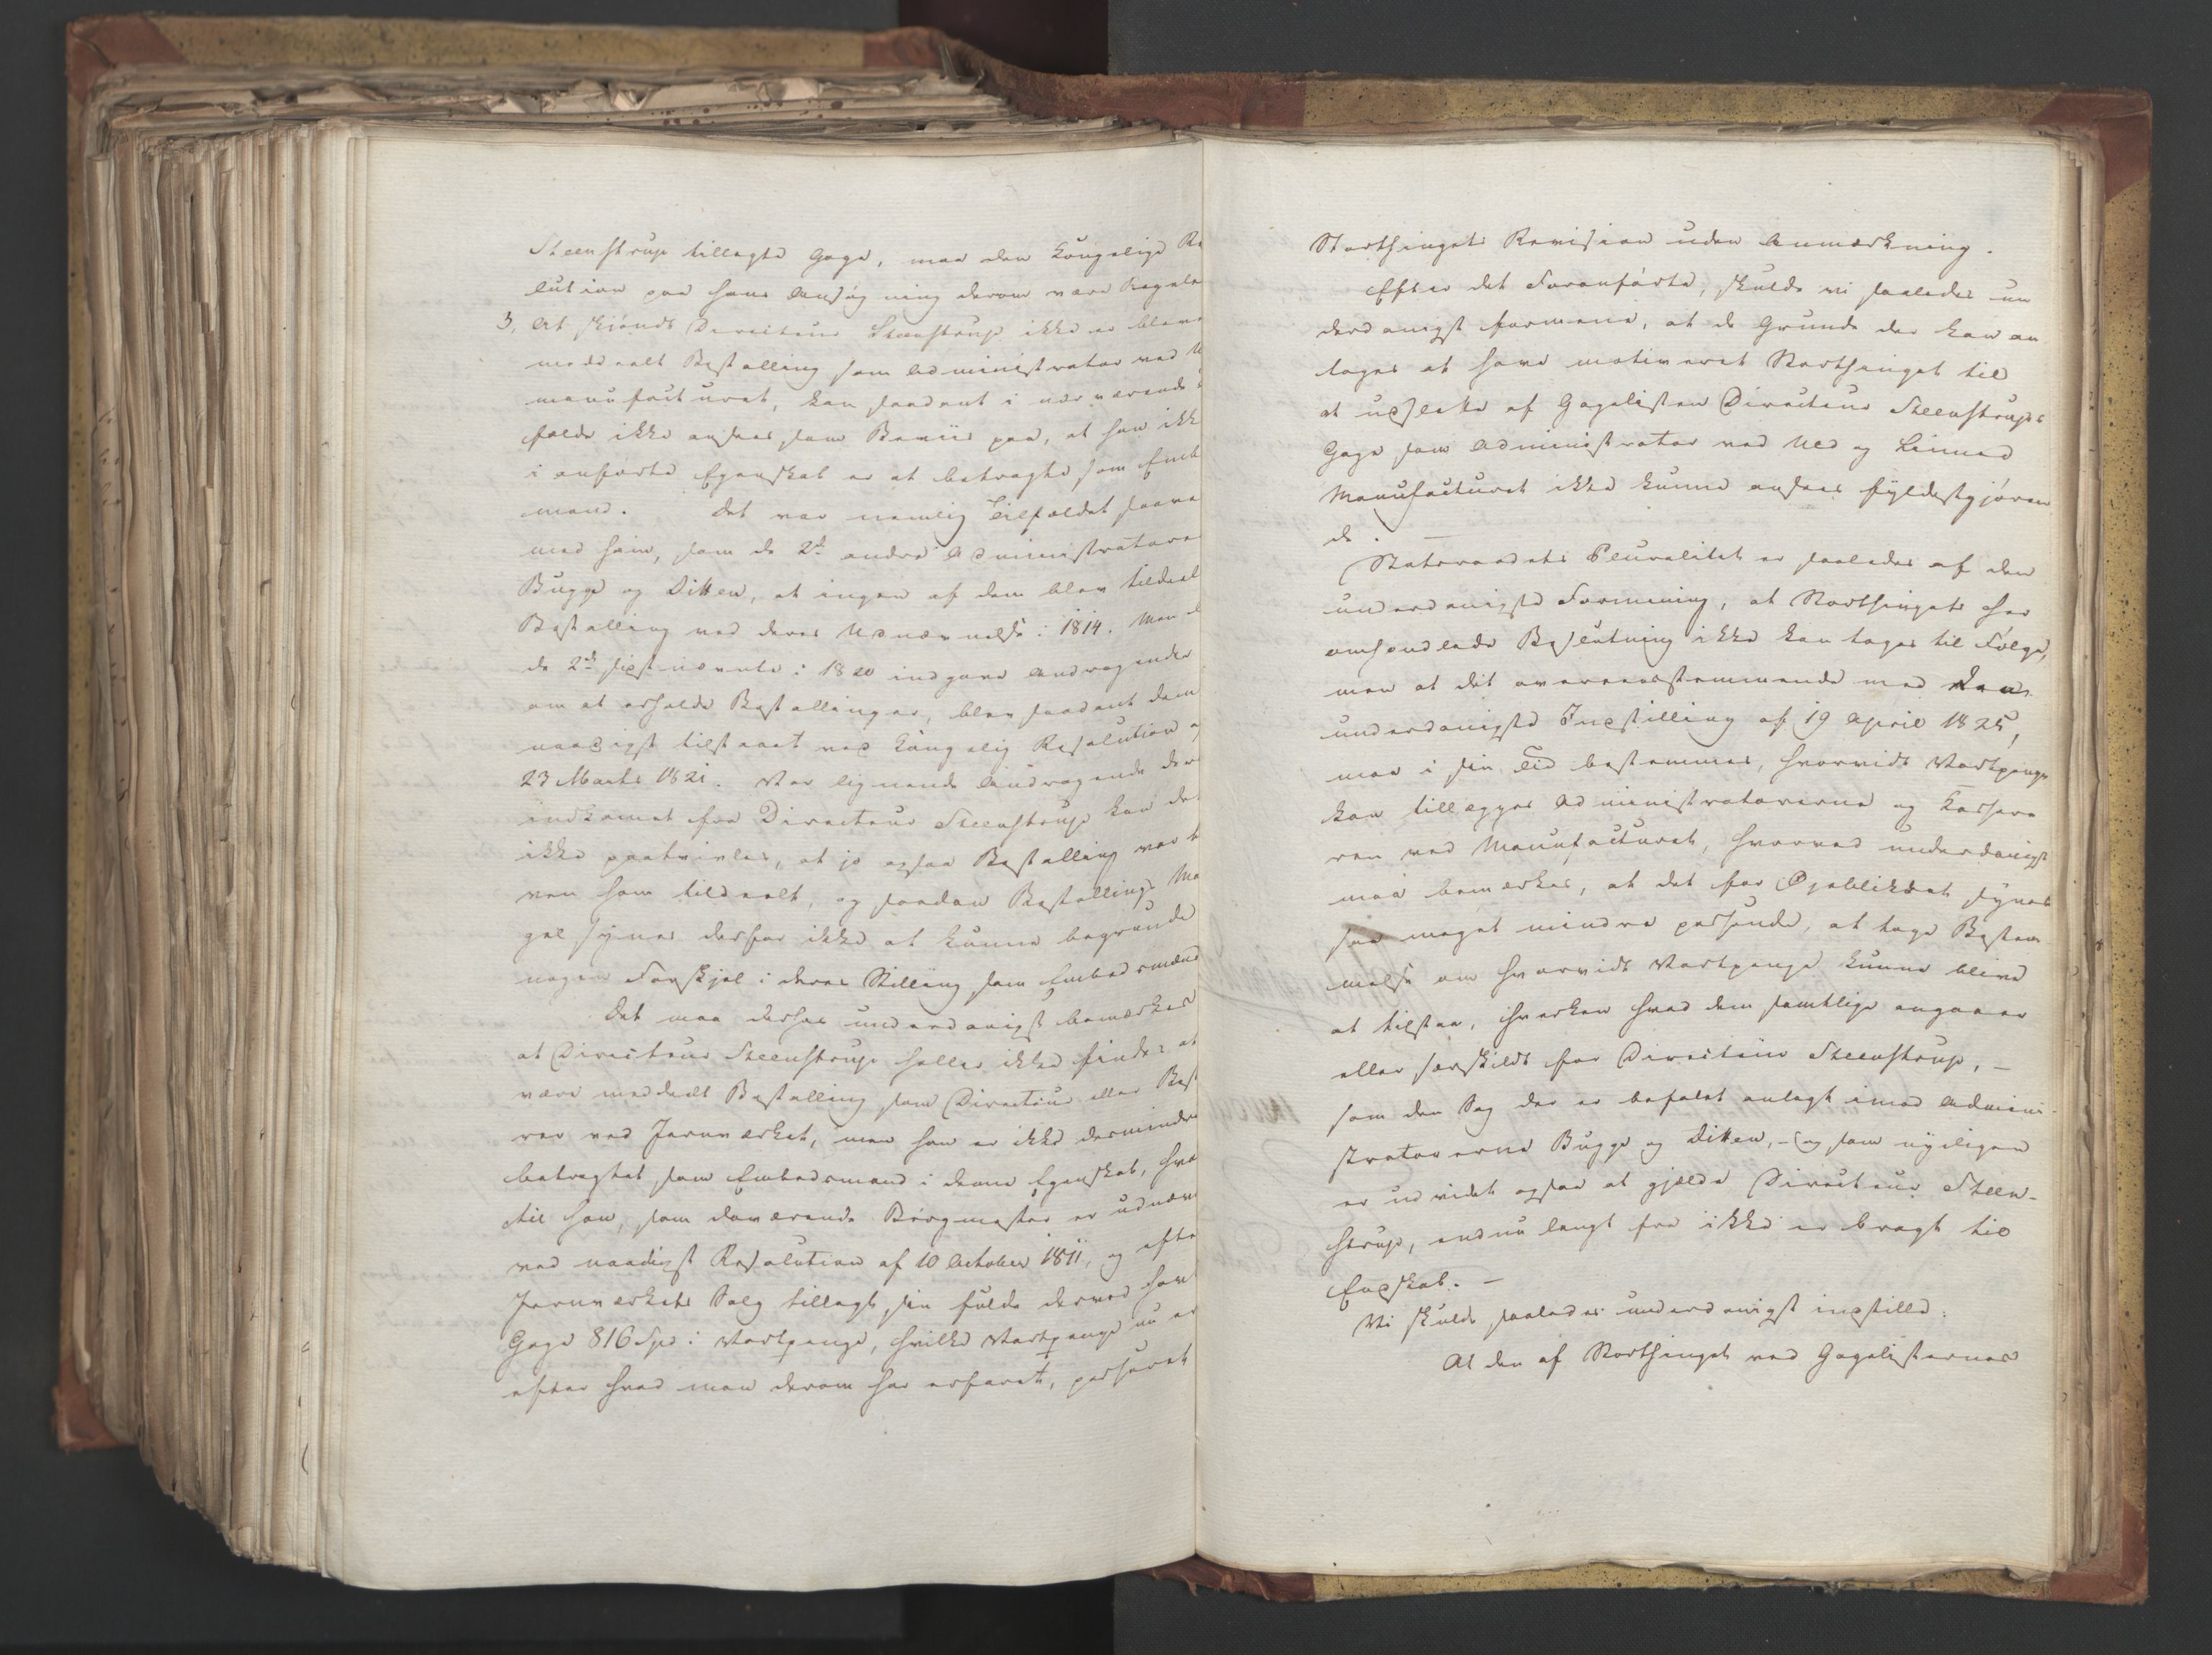 Steenstrup tillagte Gage, maa den Kongelige Re
lution paa hans Ansøgning derom være Regule
3, At skjøndt Directeur Steenstrup ikke er bleve
meddeelt Bestalling som Administrator ved U
manufacturet, kan saadant i nærværende
fælde ikke ansees som Beviis paa, at han ikk
i anførte Egenskab er at betragte som Emb
mand. Det var nemlig Tilfældet saavel
med ham, som de 2de andre Administratorer
Bugge og Ditten, at ingen af dem blev tildeel
Bestalling ved deres Udnævnelse i 1814. Men d
de 2de sidstnævnte i 1820 indgave Andragender
om at erholde Bestallinger, blev saadant dem
naadigst tilstaaet ved Kongelig Resolution af
23 Marts 1821. Var lignende Andragende der
indkomet fra Directeur Steenstrup kan det
ikke paatvivles, at jo ogsaa Bestalling var b
ven ham tildeelt, og saadan Bestallings Ma
gel synes derfor ikke at kunne begrunde
nogen Forskjel i deres Stilling som Embedsmænd
Det maa derhos underdanigst bemærkes
at Directeur Steenstrup heller ikke findes at
være meddeelt Bestalling som Directeur eller Best
rer ved Jernværket, men han er ikke desmindre
betragtet som Embedsmand i denne Egenskab, hvo
til han, som daværende Bergmester er udnævn
ved naadigst Resolution af 10 October 1811, og efte
Jernværkets Salg tillagt sin fulde derved havt
Gage 816 Spd i Vartpenge, hvilke Vartpenge nu er
efter hvad man derom har erfaret, passeret
Storthingets Revision uden Anmærkning.
Efter det Foranførte, skulde vi saaledes un
derdanigst formene, at de Grunde der kan an
tages at have motiveret Storthinget til
at udslette af Gagelisten Directeur Steenstrups
Gage som Administrator ved Uld og Linned
Manufacturet ikke kunne ansees fyldestgjøren
de. —
Statsraadets Pluralitet er saaledes af den
underdanigste Formening, at Storthingets her
omhandlede Beslutning ikke kan tages til Følge,
men at det overeensstemmende med den
underdanigste Indstilling af 19 April 1825,
maa i sin Tid bestemmes, hvorvidt Vartpenge
kan tillægges Administratorerne og Kassere
ren ved Manufacturet, hvorved underdanigst
maa bemærkes, at det for Øjeblikket synes
saa meget mindre passende, at tage Bestem
melse om hvorvidt Vartpenge kunne blive
at tilstaa, hverken hvad dem samtlige angaaer
eller særskildt for Directeur Steenstrup, —
som den Sag der er befalet anlagt imod Admini
stratorerne Bugge og Ditten, — og som nyeligen
er udvidet ogsaa at gjælde Directeur Steen-
strup, endnu langt fra ikke er bragt til
Endskab. —
Vi skulde saaledes underdanigst indstille:
At den af Storthinget ved Gagelisternes